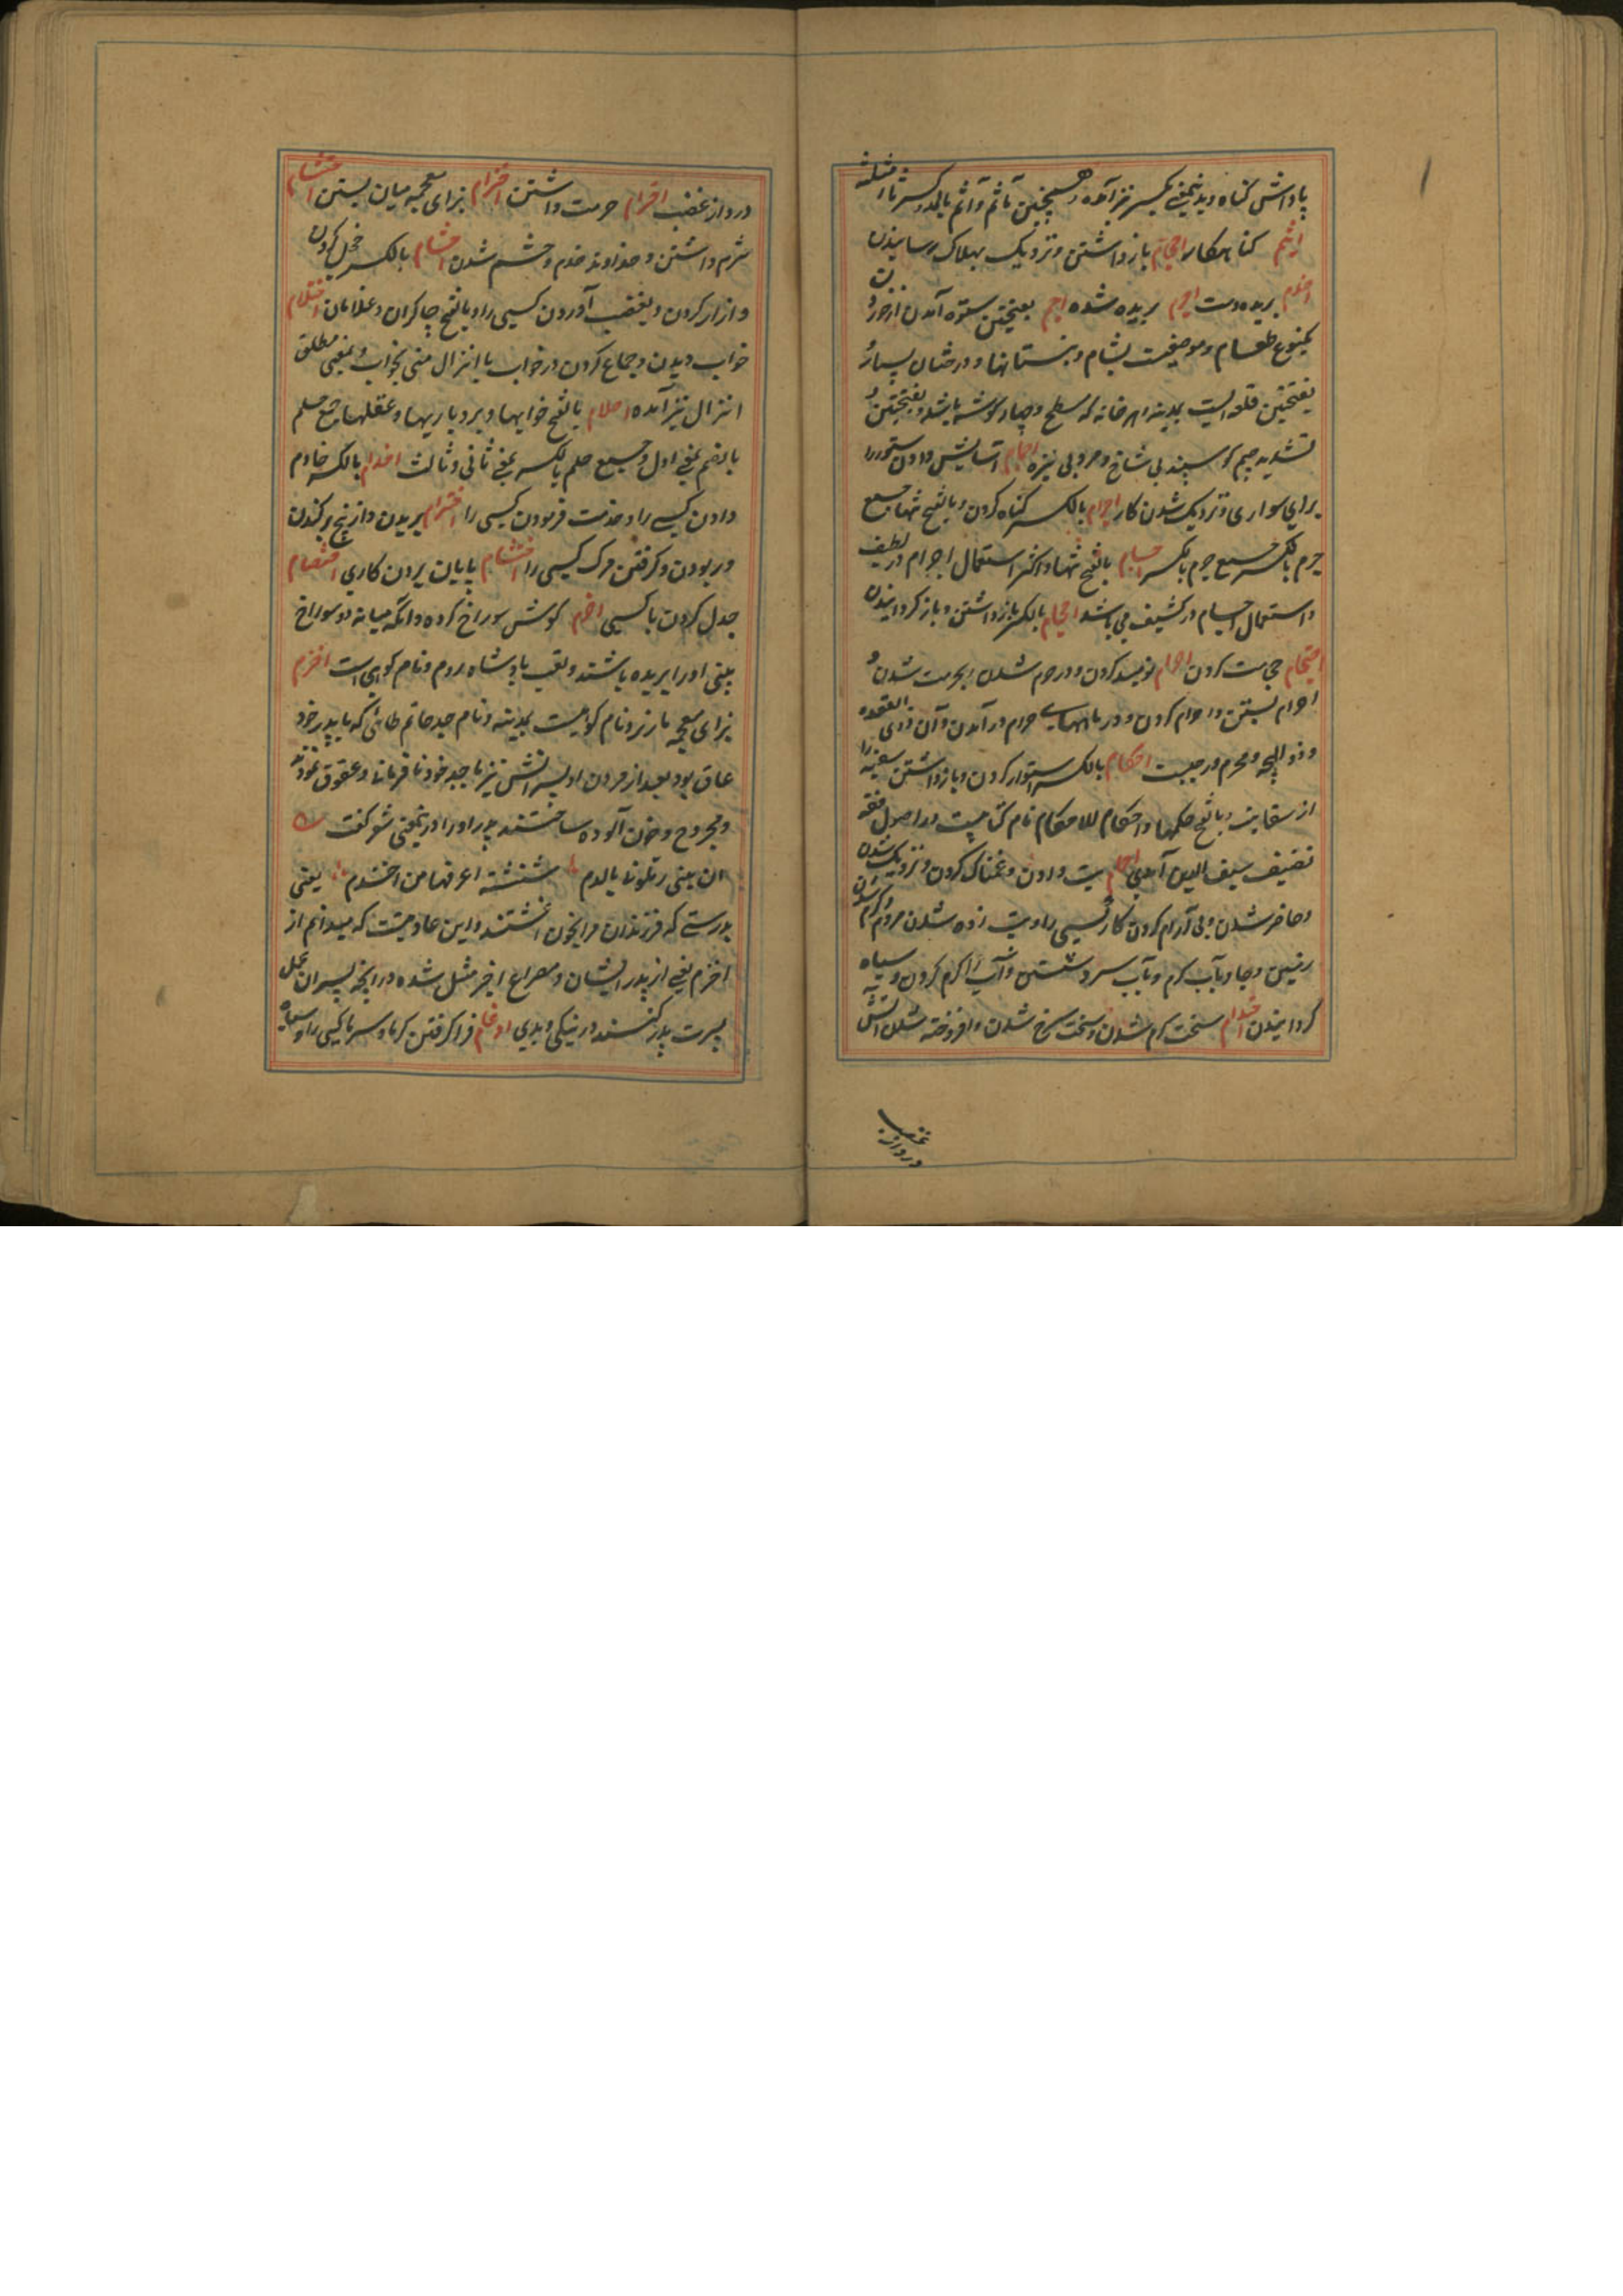 پاداش گناه و بدینمعنی بکسر نیز آمده و همچنین تأثم و آثم بالمد و کسر ثا
اثیم گناهکار احجام باز داشتن و نزدیک بهلاک رسانیدن
اجذم بریده دست اجرم بریده شده اجم بفتحتین ستوه آمدن از خوردن
یکنوع طعام و موضعیست بشام و نیستانها و درختان بسیار و
بفتحتین قلعه ایست بمدینه و هر خانه که مسطح و چهار گوشه باشد و بفتحتین و
تشدید جیم گوسپند بی شاخ و مرد بی نیزه اجمام آسایش دادن ستور را
برای سواری و نزدیک شدن کار اجرام بالکسر گناه کردن و بالفتح تنها جمع
جرم بالکسر جمع جرم بالکسر اجسام بالفتح تنها و اکثر استعمال اجرام در لطیف
و استعمال اجسام در کثیف می باشد احجام بالکسر باز داشتن و باز گردانیدن
احتجام حجامت کردن احرام نومید کردن و در حرم شدن و بحرمت شدن و
احرام بستن و احرام کردن و در ماههای حرام در آمدن و آن ذی القعده
و ذو الحجه و محرم و رجبست احکام بالکسر استوار کردن و باز داشتن سفیه را
از سفاهت و بالفتح حکمها و احکام للاحکام نام کتابیست در اصول فقه
تصنیف سیف الدین آمدی احمام تب دادن و غمناک کردن و نزدیک شدن
و حاضر شدن و بی آرام کردن کار کسی را و تب زده شدن مردم و گرم شدن
زمین و جا و بآب گرم و بآب سرد شستن و آب را گرم کردن و سیاه
گردانیدن احتدام سخت گرم شدن و سخت سرخ شدن و افروخته شدن آتش
درد از غضب
درد از غضب احترام حرمت داشتن احتزام بزای معجمه میان بستن احتشام
شرم داشتن و خداوند خدم و حشم شدن احشام بالکسر خجل کردن
و آزار کردن و بغضب آوردن کسی را و بالفتح چاکران و غلامان احتلام
خواب دیدن و جماع کردن در خواب با انزال منی بخواب و بمعنی مطلق
انزال نیز آمده احلام بالفتح خوابها و بردباریها و عقلها جمع حلم
بالضم بمعنی اول و جمع حلم بالکسر بمعنی ثانی و ثالث اخدام بالکسر خادم
دادن کسی را و خدمت فرمودن کسی را اخترام بریدن و از بیخ بر کندن
و ربودن و گرفتن مرگ کسی را اختتام بپایان بردن کاری اختصام
جدل کردن با کسی اخرم گوش سوراخ کرده و آنکه میانه دو سوراخ
بینی او را بریده باشند و لقب پادشاه روم و نام کوهی است اخزم
بزای معجمه مار نر و نام کوهیست بمدینه و نام جد حاتم طائی که با پدر خود
عاق بود بعد از مردن او پسرانش نیز با جد خود نافرمانی و عقوق نمودند
و مجروح و خون آلوده ساختند پدر او را در یمعنی شعر گفت
ان بنی رملونا بالدم شنشنة اعرفها من اخزم یعنی
بدرستی که فرزندان مرا بخون آغشتند و این عادتیست که میدانم از
اخزم یعنی از پدر ایشان و مصراع اخیر مثل شده در آنچه پسران عمل
بسیرت پدر کنند در نیکی و بدی ادغام فرا گرفتن گرما و سرما کسی را و سیاه